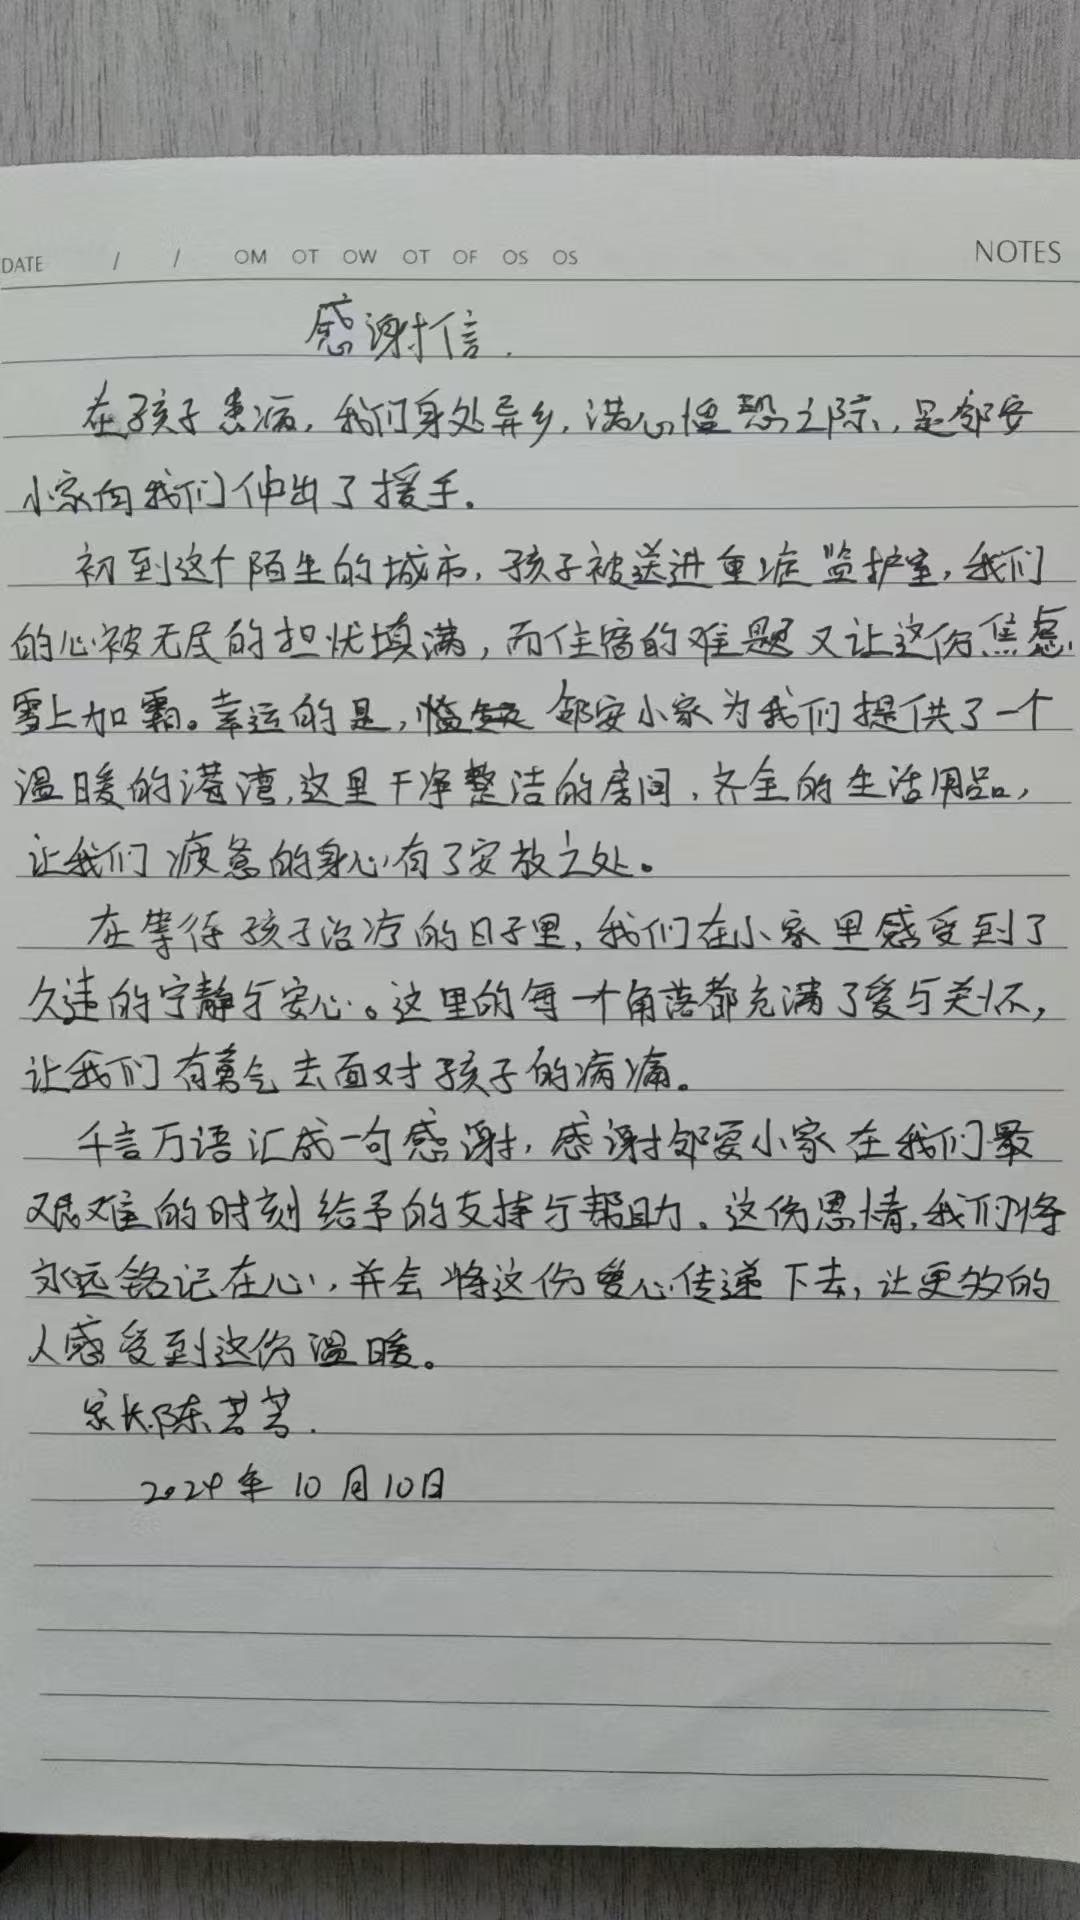 DATE / / OM OT OW OT OF OS OS NOTES
感谢信.
在孩子患病,我们身处异乡,满心惶恐之际,是邻安
小家向我们伸出了援手。
初到这个陌生的城市,孩子被送进重症监护室,我们
的心被无尽的担忧填满,而住宿的难题又让这份焦虑
雪上加霜。幸运的是, 邻安小家为我们提供了一个
温暖的港湾,这里干净整洁的房间,齐全的生活用品,
让我们疲惫的身心有了安放之处。
在等待孩子治疗的日子里,我们在小家里感受到了
久违的宁静与安心。这里的每一个角落都充满了爱与关怀,
让我们有勇气去面对孩子的病痛。
千言万语汇成一句感谢,感谢邻安小家在我们最
艰难的时刻给予的支持与帮助。这份恩情,我们将
永远铭记在心,并会将这份爱心传递下去,让更多的
人感受到这份温暖。
家长:陈
2024年10月10日